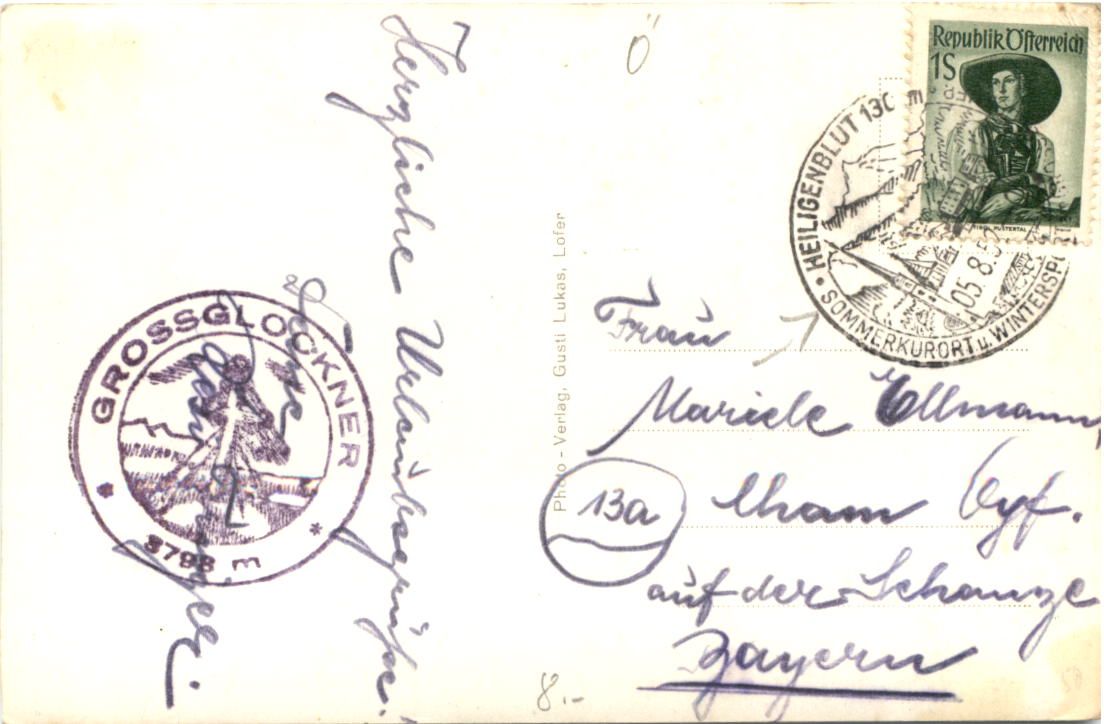 Herzliche Urlaubsgrüße!
GROSSGLOCKNER
* 3798 m *
Photo-Verlag, Gusti Lukas, Lofer
Ö
Republik Österreich
1S
TIROL PUSTERTAL
HEILIGENBLUT 130 m
05.8.5
SOMMERKURORT u. WINTERSP
Frau
Mariele Ellmann,
13a
Cham Opf.
auf der Schanze
Bayern
8.-